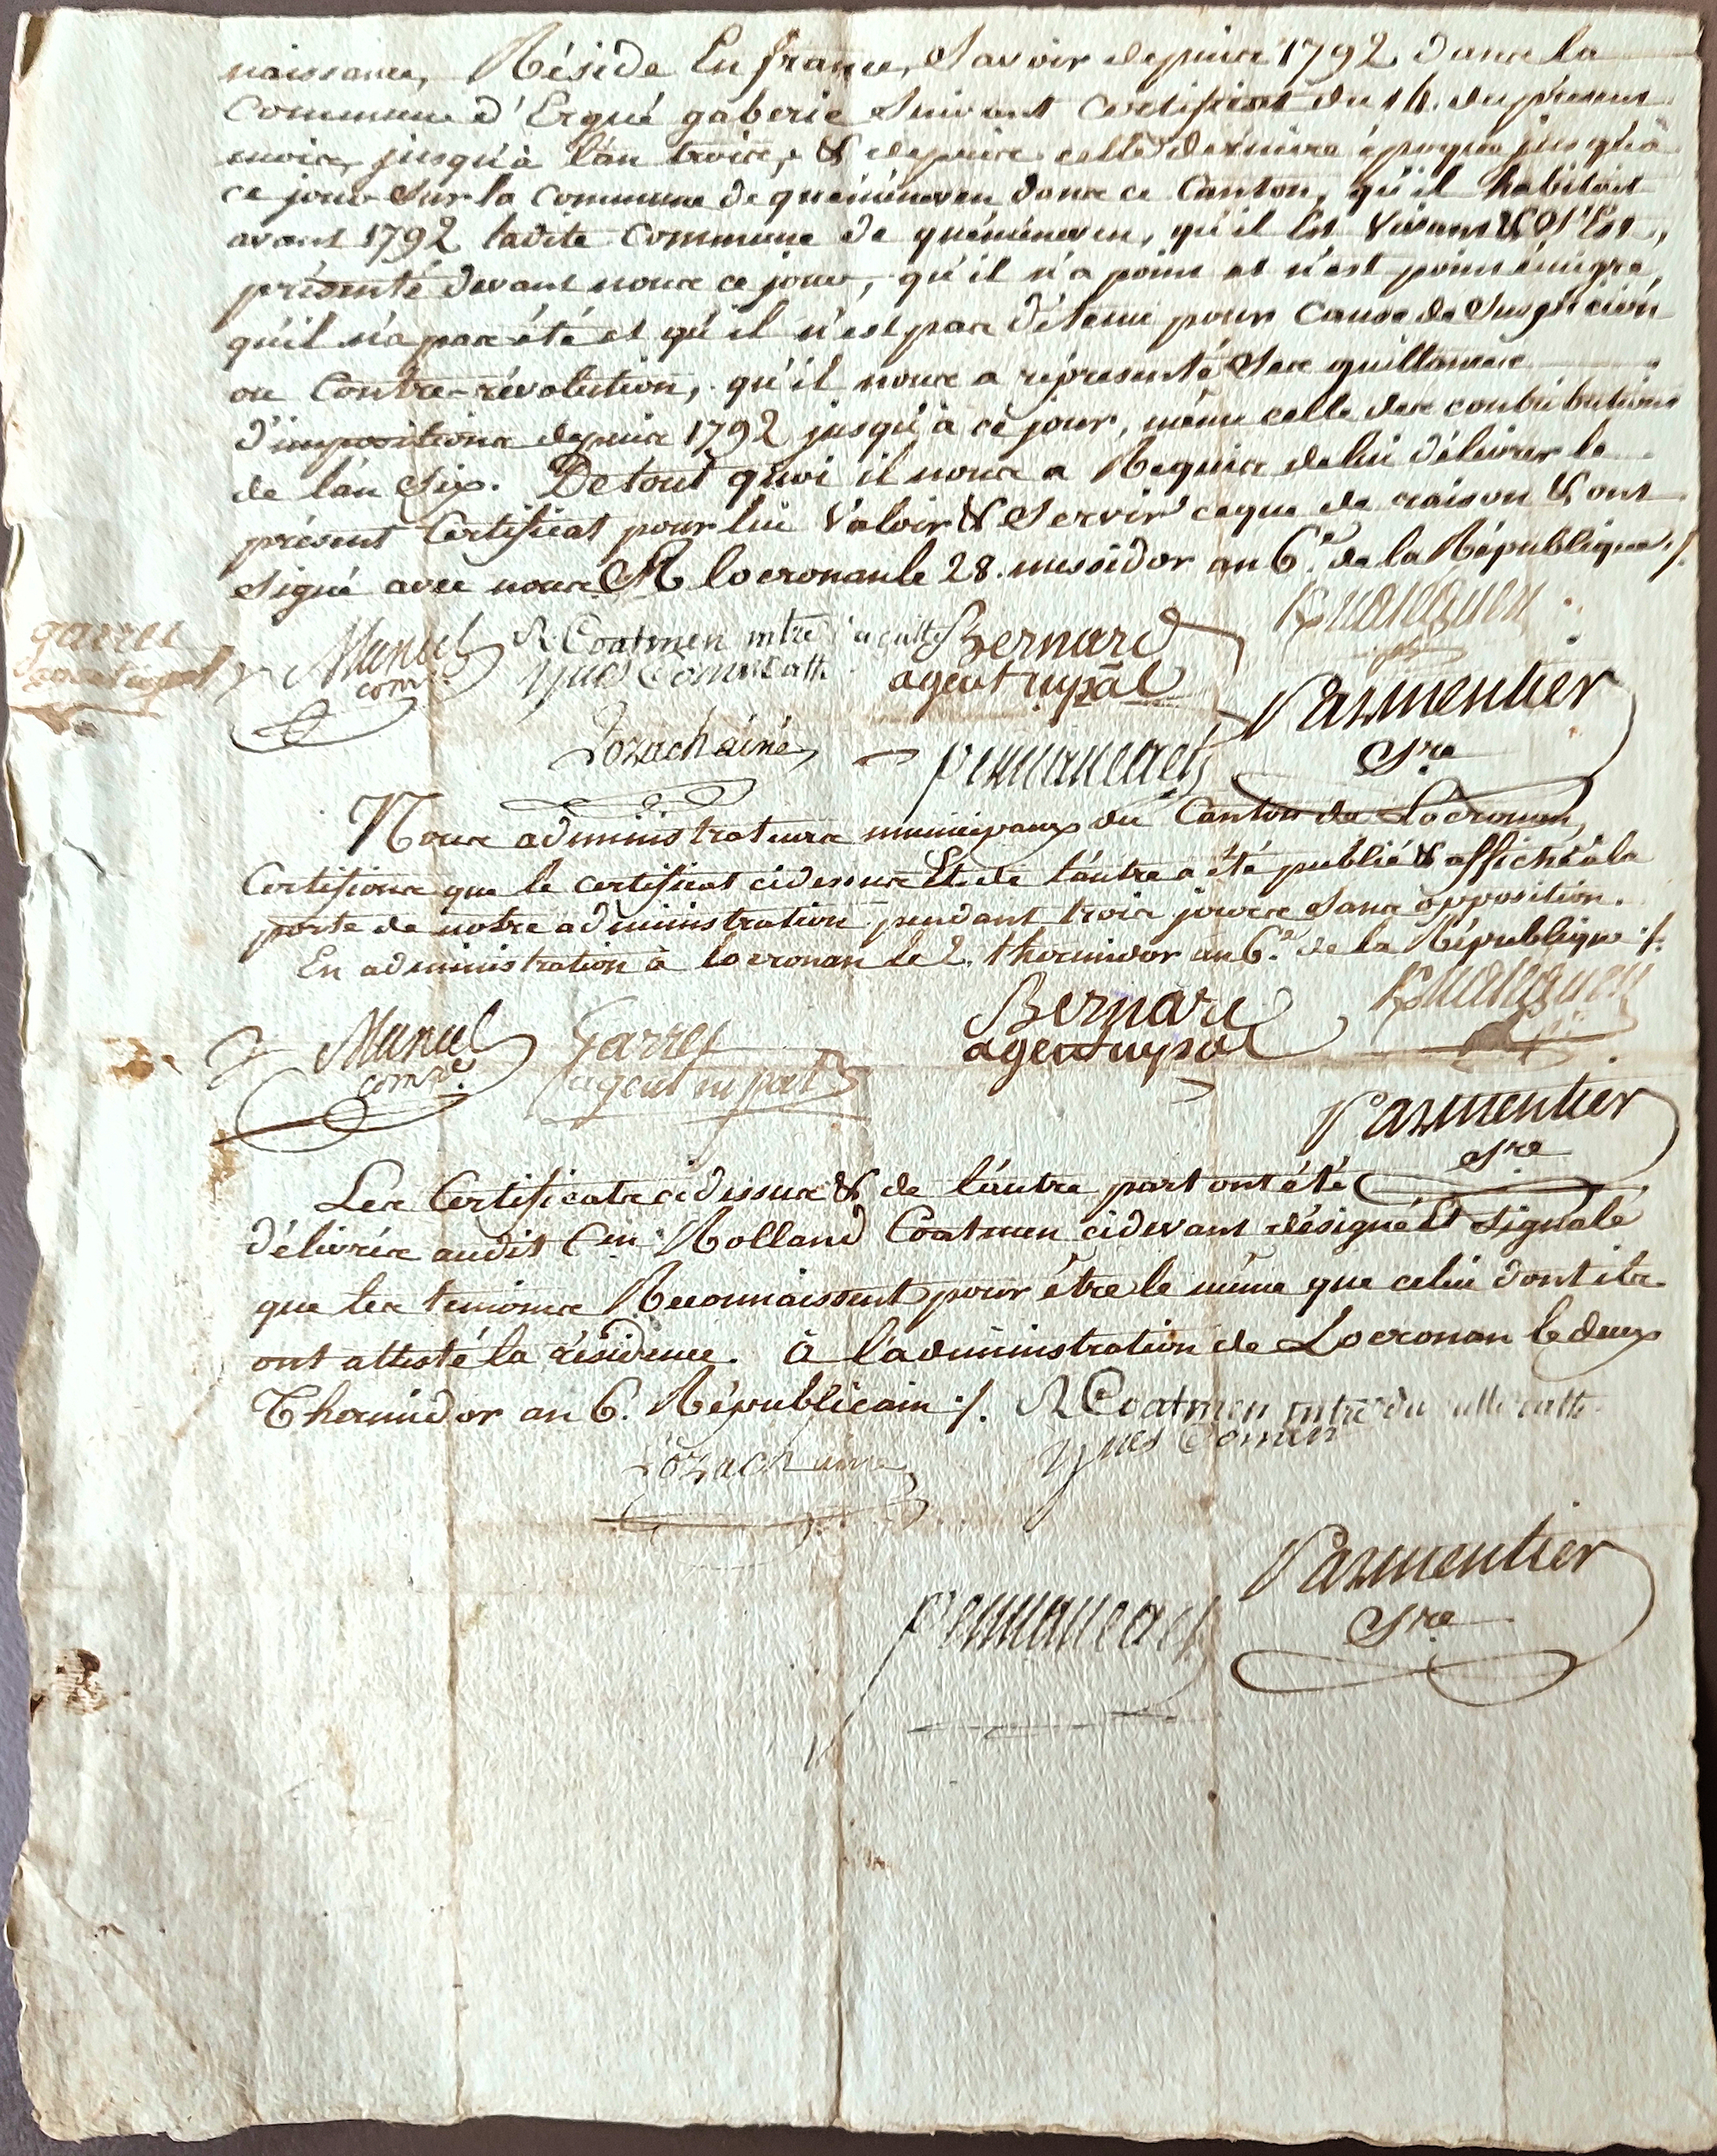 naissance, Réside En france, Savoir depuis 1792 dans la
Commune d'Ergué gaberic Suivant Certificat du 14. du présent
mois, jusqu'à l'an trois, & depuis cette dernière époque jusqu'à
ce jour Sur la Commune de quéménéven dans ce Canton, qu'il habitoit
avant 1792 ladite Commune de quéménéven, qu'il Est Vivant & S'Est,
présenté devant nous ce jour, qu'il n'a point et n'est point émigré,
qu'il n'a pas été et qu'il n'est pas détenu pour Cause de Suspicion
ou Contre-révolution, qu'il nous a représenté Ses quittances
d'impositions depuis 1792 jusqu'à ce jour, même celle des contributions
de l'an Six. De tout quoi il nous a Requis de lui délivrer le
présent Certificat pour lui Valoir & Servir ce que de raison & ont
signé avec nous. A locronan le 28. messidor an 6.e de la République ./.
garrec
agent mpal
Manuel
com.re
R Coatmen mtre du culte
yves Comen cath
Bernard
agent mpal
Lozach ainé
Parmentier
Sre
Nous administrateurs municipaux du Canton de Locronan,
Certifions que le certificat cidessus Et de l'autre a été publié & affiché à la
porte de notre administration pendant trois jours Sans opposition.
En administration à locronan le 2. thermidor an 6.e de la République ./.
Manuel
com.re
Garrec
agent mpal
Bernard
agent mpal
Parmentier
Sre
Les Certificats cidessus & de l'autre part ont été
délivrés audit Cen Rolland Coatmen cidevant désigné Et signalé
que les temoins Reconnaissent pour être le même que celui dont ils
ont attesté la résidence. à l'administration de Locronan le deux
Thermidor an 6. Républicain ./. R Coatmen mtre du culte cath
yves Comen
Lozach ainé
Parmentier
Sre